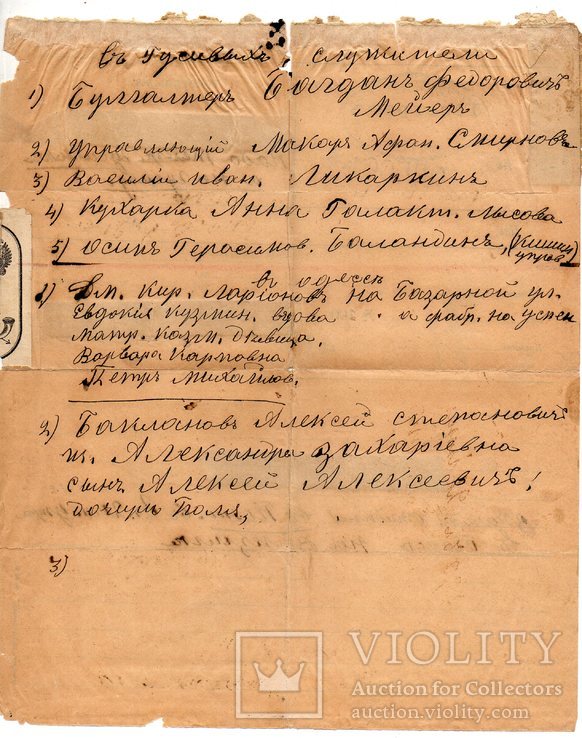 въ Гусивыхъ служители
1) Бухгалтеръ Багданъ Федоровичъ
Мейеръ
2) Управляющий Макаръ Афан. Смирновъ
3) Василий Иван. Ликаркинъ
4) Кухарка Анна Галакт. Лысова
5) Осипъ Герасимов. Баландинъ,
управ
въ одессе
1) Дм. Кир. Ларионовъ на Базарной ул.
Евдокия Кузмин. вдова а фабр. на успен
Матр. Козм. девица,
Варвара Карповна
Петръ Михайлов.
2) Баклановъ Алексей Степановичъ
ж. Александра Захаріевна
сынъ Алексей Алексеевичъ!
дочери Поля,
3)
VIOLITY
Auction for Collectors
auction.violity.com